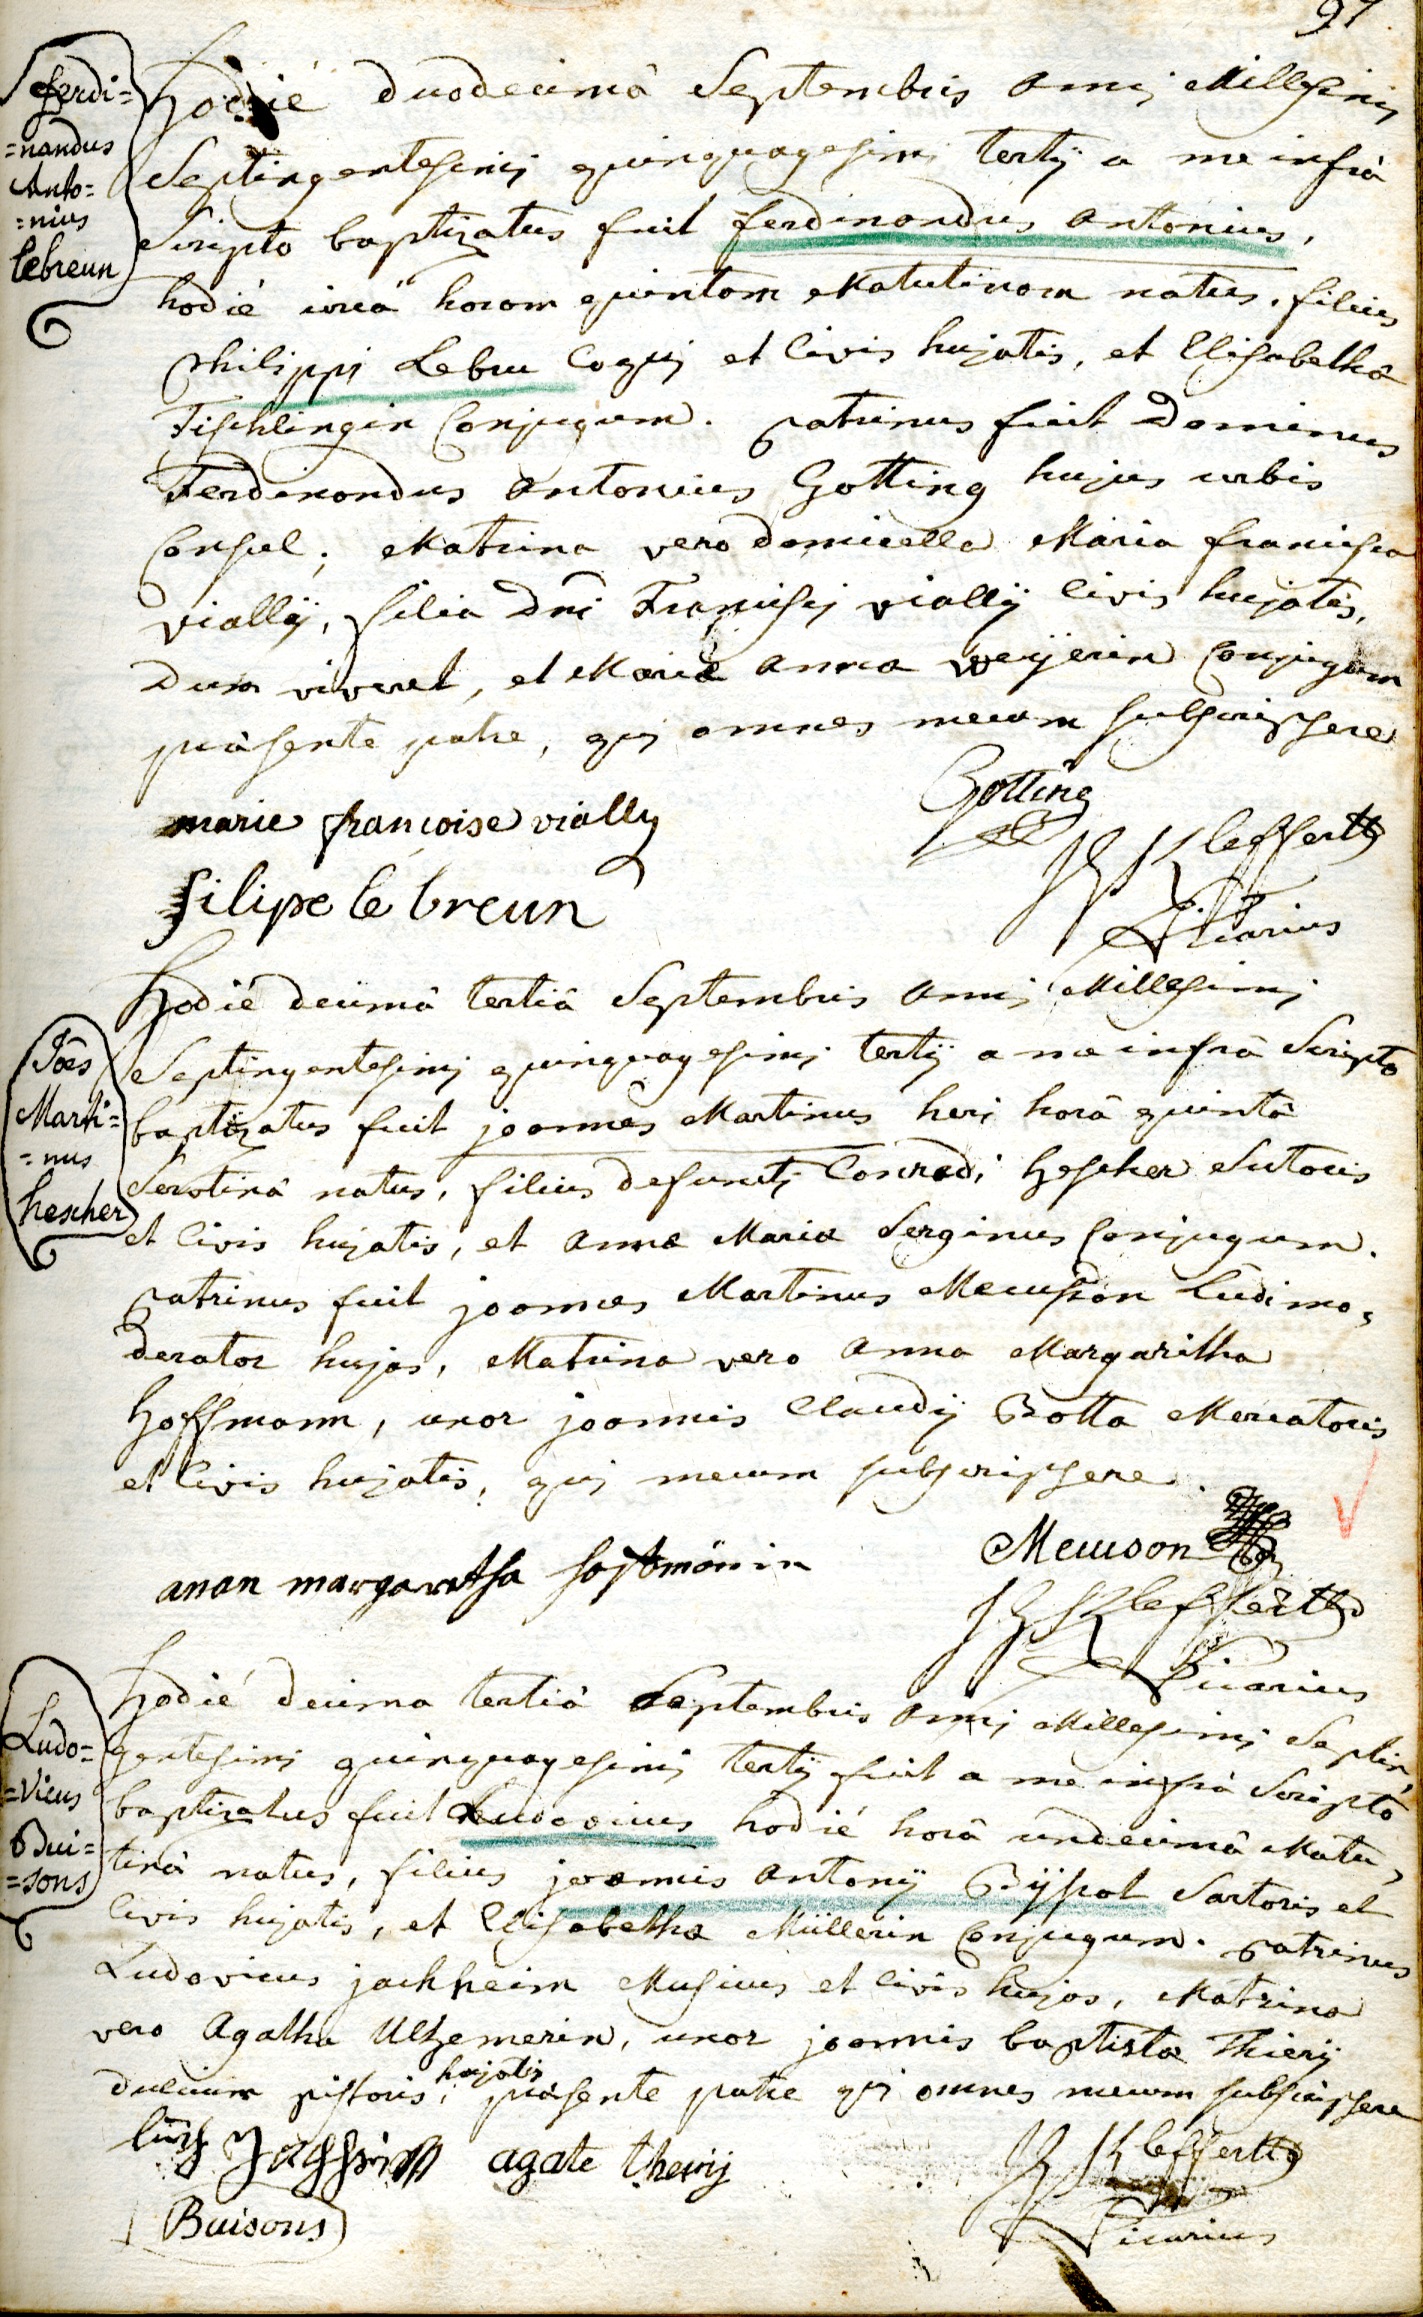 97
ferdi=
=nandus
Anto=
=nius
lebreun
Hodié duodecimâ Septembris anni Millesimi
Septingentesimi quinquagesimi tertij a me infrà
Scripto baptizatus fuit ferdinandus antonius,
hodié circâ horam quintam Matutinam natus, filius
Philippi Lebru Coqui et Civis hujatis, et Elisabethâ
Fischlingin Conjugum. Patrinus fuit Dominus
Ferdinandus Antonius Gotting hujus urbis
Consul; Matrina vero domicella Maria francisca
vially, filia Dni Francisci vially Civis hujatis,
dum viveret, et Mariæ Anna weyerin Conjugum
præsente patre, qui omnes mecum subscripsere
marie françoise vially
Gotting
filipe le breun
Kleffertz
Vicarius
Joês
Marti=
=nus
hescher
Hodié decimâ tertiâ Septembris anni Millesimi
Septingentesimi quinquagesimi tertij a me infrâ Scripto
baptizatus fuit joannes Martinus heri horâ quintâ
Serotinâ natus, filius defuncti Conradi Hescher Sutoris
et Civis hujatis, et Annæ Mariæ Serginus Conjugum.
Patrinus fuit joannes Martinus Mewsson Ludimo=
derator hujas, Matrina vero Anna Margaritha
Hoffmann, uxor joannis Claudij Botta Mercatoris
et Civis hujatis, qui mecum subscripsere.
anan margaretha hoffmänin
Mewson
Kleffertz
Vicarius
Ludo=
=vicus
Bui=
=sons
Hodié decima tertiâ Septembris anni Millesimi Septin,
gentesimi quinquagesimi tertij fuit a me infrà Scripto
baptizatus fuit Ludovicus hodié horâ undecimâ Matu,
tinâ natus, filius joannis antonij Byssot Sartoris et
Civis hujatis, et Elisabetha Müllerin Conjugum. Patrinus
Ludovicus jachheim Musicus et Civis hujas, Matrina
vero Agatha Ulhemerin, uxor joannis baptistæ Thiery
dulcium pistoris hujatis, præsente patre qui omnes mecum subscripsere
agate thewij
Buisons
Kleffertz
Vicarius